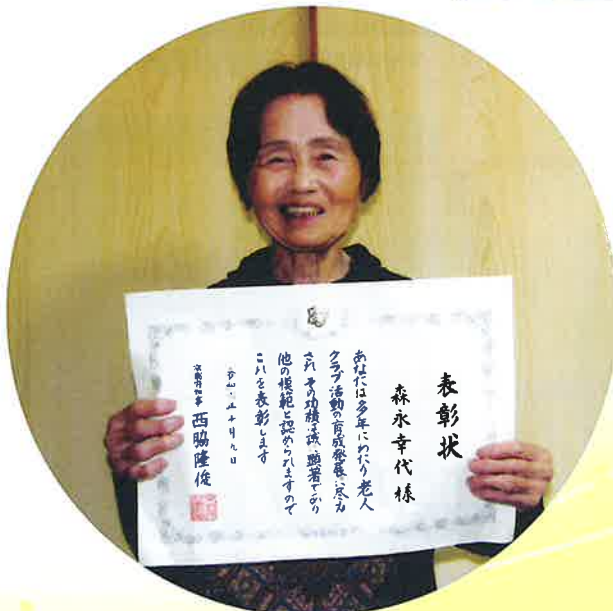 表彰状
森永幸代様
あなたは多年にわたり老人
クラブ活動の育成発展に尽力
され その功績は誠に顕著であり
他の模範と認められますので
これを表彰します
十月九日
京都府知事 西脇隆俊